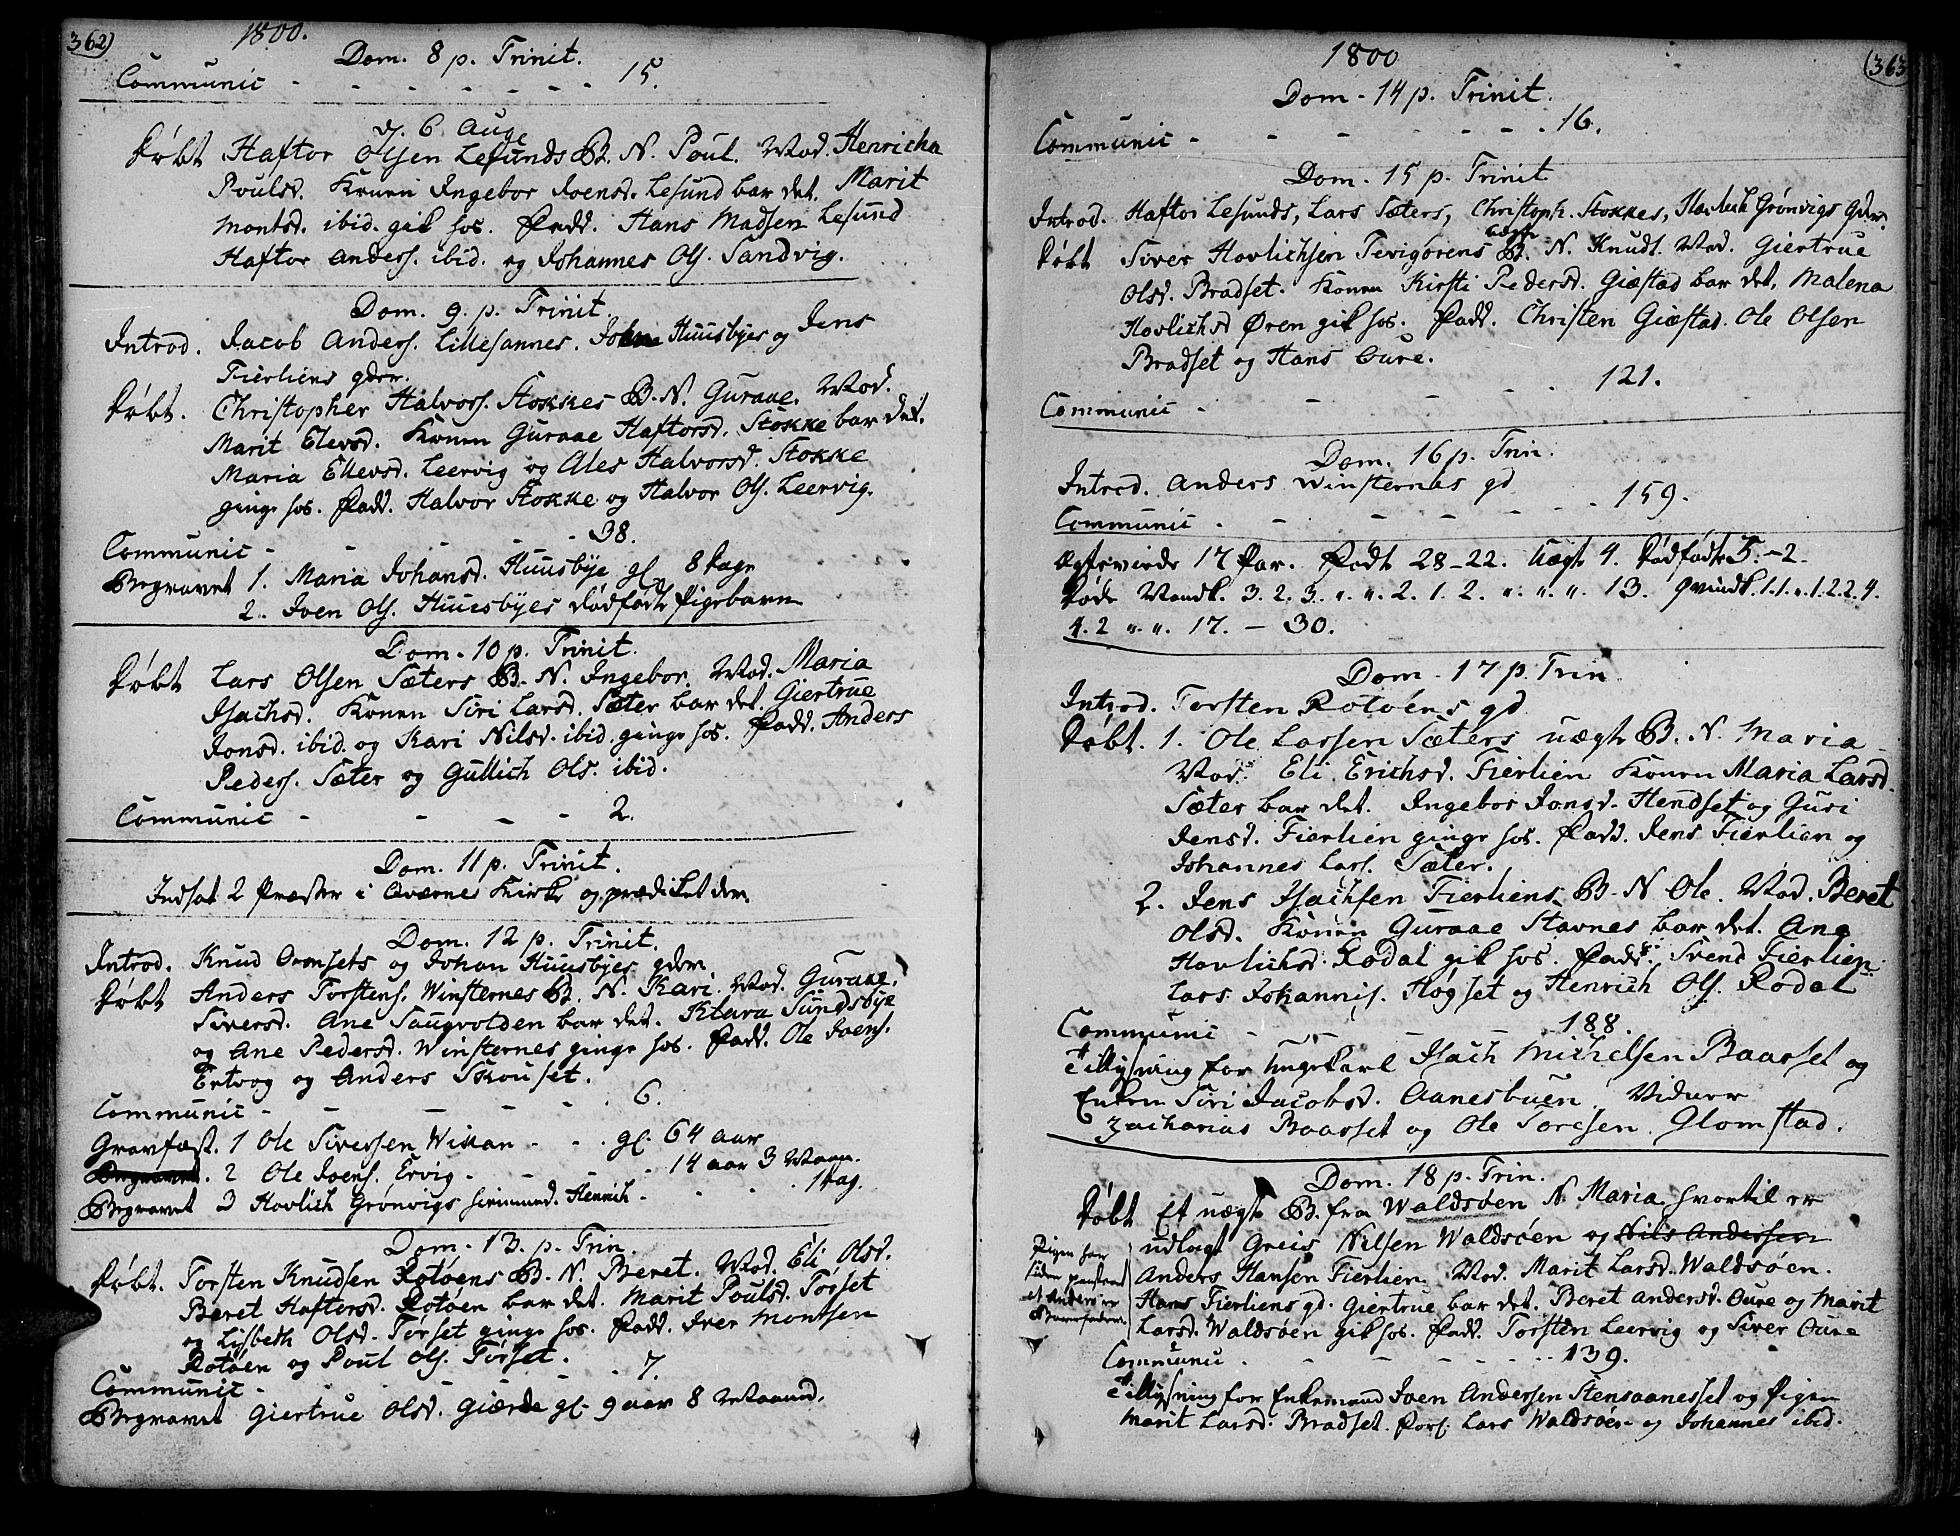 362)
1800.
Dom. 8 p. Trinit.
Communic - - - - - - - 15.
d. 6 Aug
Døbt Haftor Olsen Lesunds B. N. Poul. Mod. Henricha
Poulsd. Konen Ingebor Joensd. Lesund bar det. Marit
Montsd. ibid. gik hos. Fadd. Hans Madsen Lesund
Haftor Anders. ibid. og Johannes Ols. Sandvig.
Dom. 9. p. Trinit.
Introd. Jacob Anders. Lillesannes. Huusbyes og Jens
Fierliens qder.
Døbt. Christopher Halvors. Stokkes B. N. Guraae. Mod.
Marit Elevsd. Konen Guraae Haftorsd. Stokke bar det.
Maria Ellevsd. Leervig og Ales Halvorsd. Stokke
ginge hos. Fadd. Halvor Stokke og Halvor Ols. Leervig.
Communic - - - - 38.
Begravet 1. Maria Johansd. Huusbye gl. 8 Dage
2. Joen Ols. Huusbyes dødfødt Pigebarn
Dom. 10 p. Trinit.
Døbt Lars Olsen Sæters B. N. Ingebor. Mod. Maria
Isachsd. Konen Siri Larsd. Sæter bar det. Giertrue
Jonsd. ibid. og Kari Nilsd. ibid. ginge hos. Fadd. Anders
Peders. Sæter og Gullich Ols. ibid.
Communic - - - - 2.
Dom. 11 p. Trinit.
Indsat 2 Præster i Qværnes Kirke og prædiket der.
Dom. 12 p. Trinit.
Introd. Knud Ormsets og Johan Huusbyes qder.
Døbt Anders Torstens. Winsternes B. N. Kari. Mod. Guraae
Siversd. Ane Saugvolden bar det. Klara Sundsbye
og Ane Pedersd. Winsternes ginge hos. Fadd. Ole Joens.
Ertvog og Anders Skouset.
Communic - - - - - 6.
Gravfæst. 1 Ole Siversen Wikan - - gl. 64 aar
2 Ole Joens. Ervig - - - 14 aar 3 Maan.
Begravet 3 Hovlich Grønvigs Henrich - - - 1 Dag.
Dom. 13. p. Trin.
Døbt. Torsten Knudsen Rotøens B. N. Beret. Mod. Eli Olsd.
Beret Haftersd. Rotøen bar det. Marit Poulsd. Torset
og Lisbeth Olsd. Torset ginge hos. Fadd. Iver Montsen
Rotøen og Poul Ols. Torset.
Communic - - - - 7.
Begravet Giertrue Olsd. Giærde gl. 9 aar 8 Maaned.
1800
(363
Dom. 14 p. Trinit.
Communic - - - - - - 16.
Dom. 15 p. Trinit.
Introd. Haftor Lesunds, Lars Sæters, Christoph. Stokkes, Grønvigs Qder.
Døbt Siver Hovlichsen Tevigorens B. N. Knud. Mod. Giertrue
Olsd. Bradset. Konen Kirsti Pedersd. Giæstad bar det. Malena
Hovlichsd Øren gik hos. Fadd. Christen Giæstad. Ole Olsen
Bradset og Hans Oure.
Communic - - - - 121.
Dom. 16 p. Trin.
Introd. Anders Winsternes qd
Communic - - - - - 159.
Ægteviede 17 Par. Fødte 28-22. Uægte 4. Dødfødte 5.-2.
Døde Mandk. 3. 2. 3. „. „. 2. 1. 2. „. „. „. 13. Qvindk. 1. 1. „. 1. 2. 2. 4.
4. 2 „. „. 17. - 30.
Dom. 17 p. Trin
Introd. Torsten Rotøens qd
Døbt. 1. Ole Larsen Sæters uægte B. N. Maria
Mod. Eli Erichsd. Fierlien Konen Maria Larsd.
Sæter bar det. Ingebor Jonsd. Hendset og Guri
Jensd. Fierlien ginge hos. Fadd. Jens Fierlien og
Johannes Lars. Sæter.
2. Jens Isachsen Fierliens B. N Ole. Mod. Beret
Olsd. Konen Guraae Stavnes bar det. Ane
Hovlichsd. Rodal gik hos. Fadd. Svend Fierlien
Lars Johannis. Høgset og Henrich Ols. Rodal
Communic - - - - 188.
Tillysning for Ungekarl Isach Michelsen Baasset og
Enken Siri Jacobsd. Aanesbuen. Vidner
Zacharias Baasset og Ole Toresen Glomstad.
Dom. 18 p. Trin.
Døbt Et uægte B. fra Waldsøen N. Maria hvortil er
udlagt Greis Nilsen Waldsøen og Nils Andersen
Anders Hansen Fierlien. Mod. Marit Larsd. Waldsøen.
Hans Fierliens qd. Giertrue bar det. Beret Andersd. Oure og Marit
Larsd. Waldsøen gik hos. Fadd. Torsten Leervig og Siver Oure
Pigen har
siden paastaaet
at Anders er
Barnefader
Communic - - - - - 139.
Tillysning for Enkemand Joen Andersen Stensaanesset og Pigen
Marit Larsd. Bradset. Forl. Lars Waldsøen og Johannes ibid.